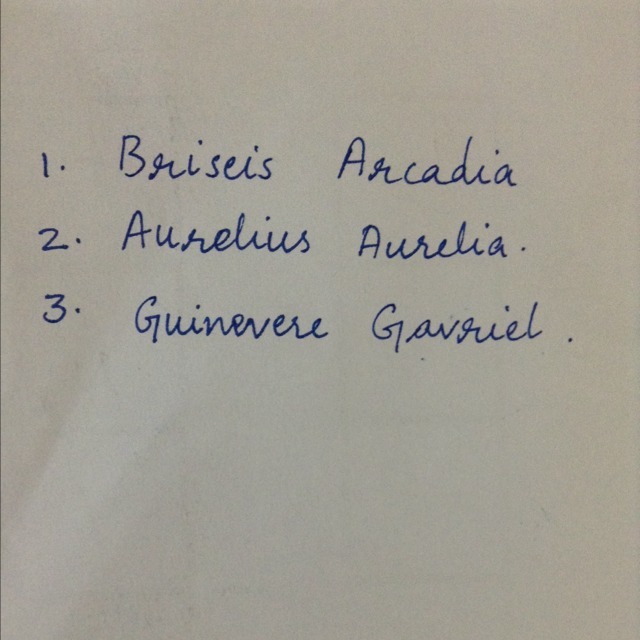 1. Briseis Arcadia
2. Aurelius Aurelia.
3. Guinevere Gavriel.